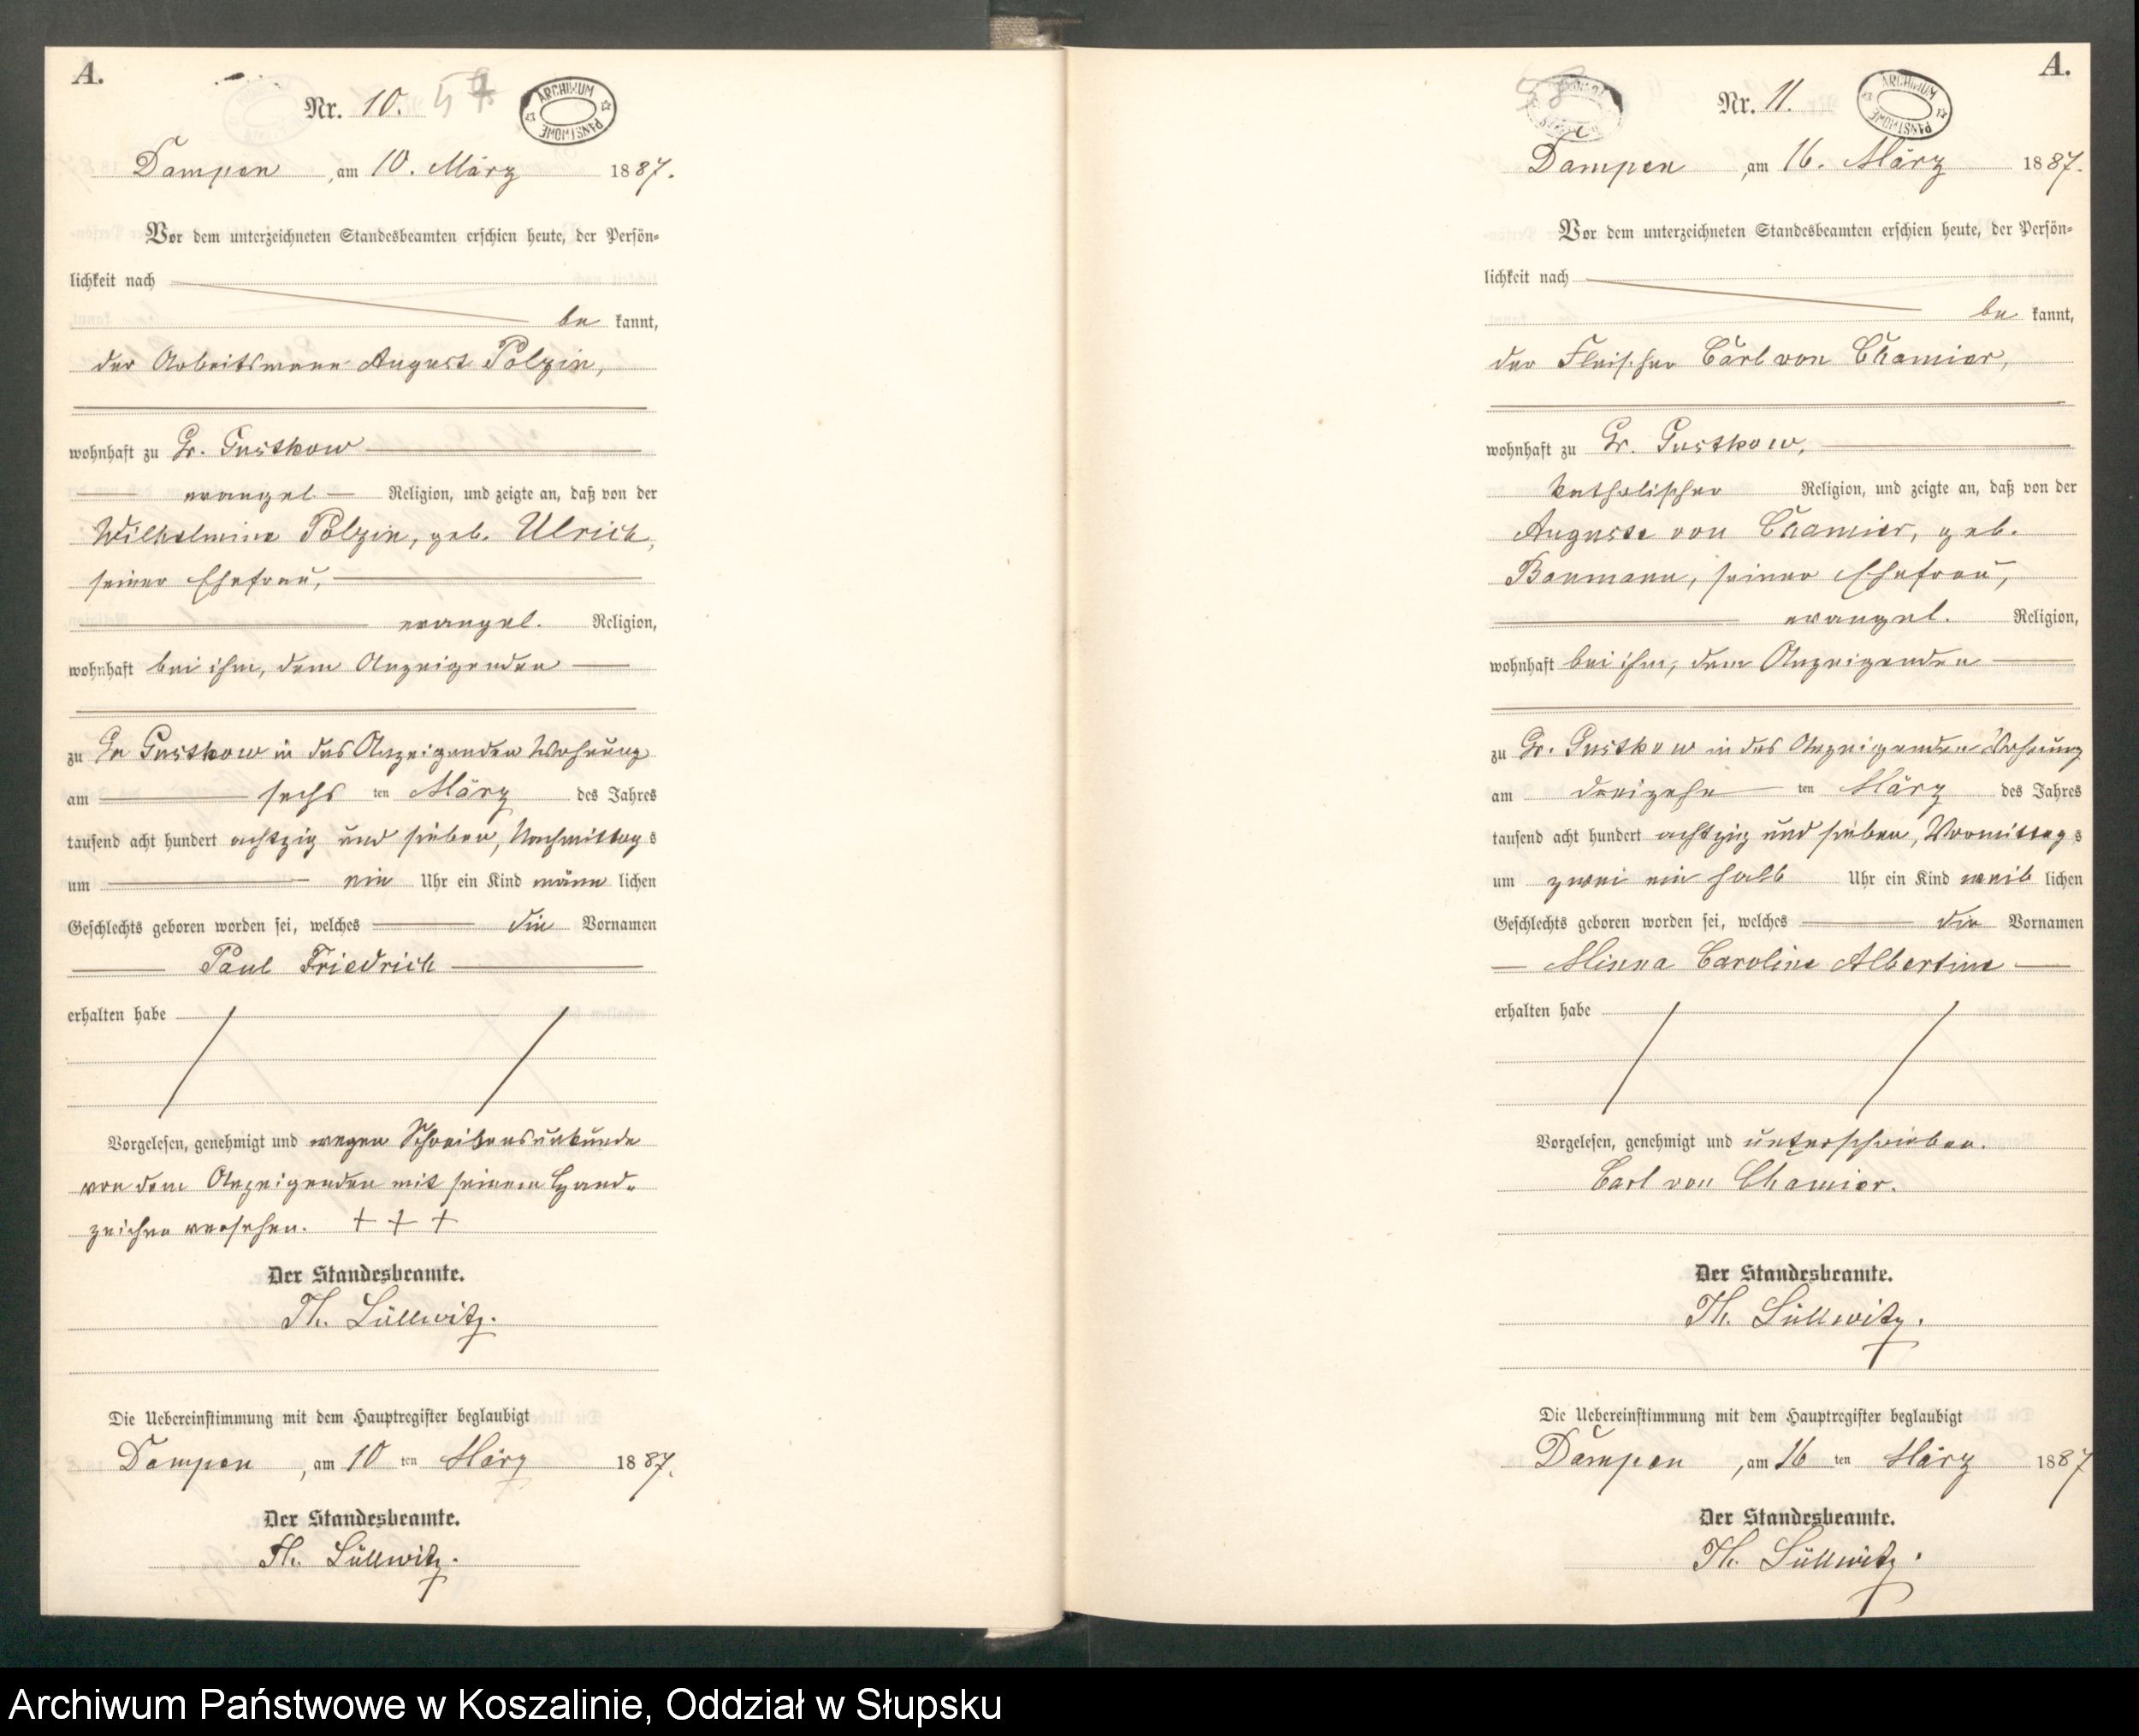 A.
Nr. 10. 57
ARCHIWUM PAŃSTWOWE
Dampen, am 10. März 1887.
Vor dem unterzeichneten Standesbeamten erschien heute, der Persön-
lichkeit nach
be kannt,
der Arbeitsmann August Polzin,
wohnhaft zu Gr. Gustkow
evangel. Religion, und zeigte an, daß von der
Wilhelmine Polzin, geb. Ulrich,
seiner Ehefrau,
evangel. Religion,
wohnhaft bei ihm, dem Anzeigenden
zu Gr Gustkow in des Anzeigenden Wohnung
am sechs ten März des Jahres
tausend acht hundert achtzig und sieben, Nachmittag s
um ein Uhr ein Kind männ lichen
Geschlechts geboren worden sei, welches die Vornamen
Paul Friedrich
erhalten habe
Vorgelesen, genehmigt und wegen Schreibensunkunde
von dem Anzeigenden mit seinem Hand-
zeichen versehen. + + +
Der Standesbeamte.
Th. Lüllwitz.
Die Uebereinstimmung mit dem Hauptregister beglaubigt
Dampen, am 10 ten März 1887.
Der Standesbeamte.
Th. Lüllwitz.
A.
58 Nr. 11.
ARCHIWUM PAŃSTWOWE
Dampen, am 16. März 1887.
Vor dem unterzeichneten Standesbeamten erschien heute, der Persön-
lichkeit nach
be kannt,
der Fleischer Carl von Chamier,
wohnhaft zu Gr. Gustkow,
katholischer Religion, und zeigte an, daß von der
Auguste von Chamier, geb.
Baumann, seiner Ehefrau,
evangel. Religion,
wohnhaft bei ihm, dem Anzeigenden
zu Gr. Gustkow in des Anzeigenden Wohnung
am dreizehn ten März des Jahres
tausend acht hundert achtzig und sieben, Vormittag s
um zwei ein halb Uhr ein Kind weib lichen
Geschlechts geboren worden sei, welches die Vornamen
Minna Caroline Albertine
erhalten habe
Vorgelesen, genehmigt und unterschrieben.
Carl von Chamier.
Der Standesbeamte.
Th. Lüllwitz.
Die Uebereinstimmung mit dem Hauptregister beglaubigt
Dampen, am 16 ten März 1887
Der Standesbeamte.
Th. Lüllwitz.
Archiwum Państwowe w Koszalinie, Oddział w Słupsku